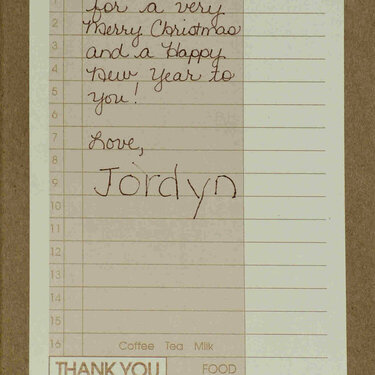 1 for a very
2 Merry Christmas
3 and a Happy
4 New Year to
5 you!
6
7 Love,
8
9 Jordyn
10
11
12
13
14
15
16 Coffee Tea Milk
THANK YOU FOOD